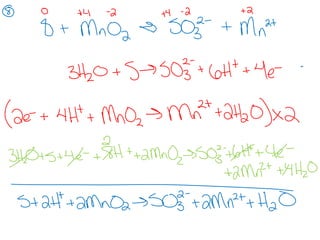 ⑧ 0 +4 -2 +4 -2 +2
8 + MnO₂ → SO₃²⁻ + Mn²⁺
3H₂O + S → SO₃²⁻ + 6H⁺ + 4e⁻
(2e⁻ + 4H⁺ + MnO₂ → Mn²⁺ + 2H₂O) x 2
2
3H₂O + S + 4e⁻ + 8H⁺ + 2MnO₂ → SO₃²⁻ + 6H⁺ + 4e⁻
+ 2Mn²⁺ + 4H₂O
S + 2H⁺ + 2MnO₂ → SO₃²⁻ + 2Mn²⁺ + H₂O